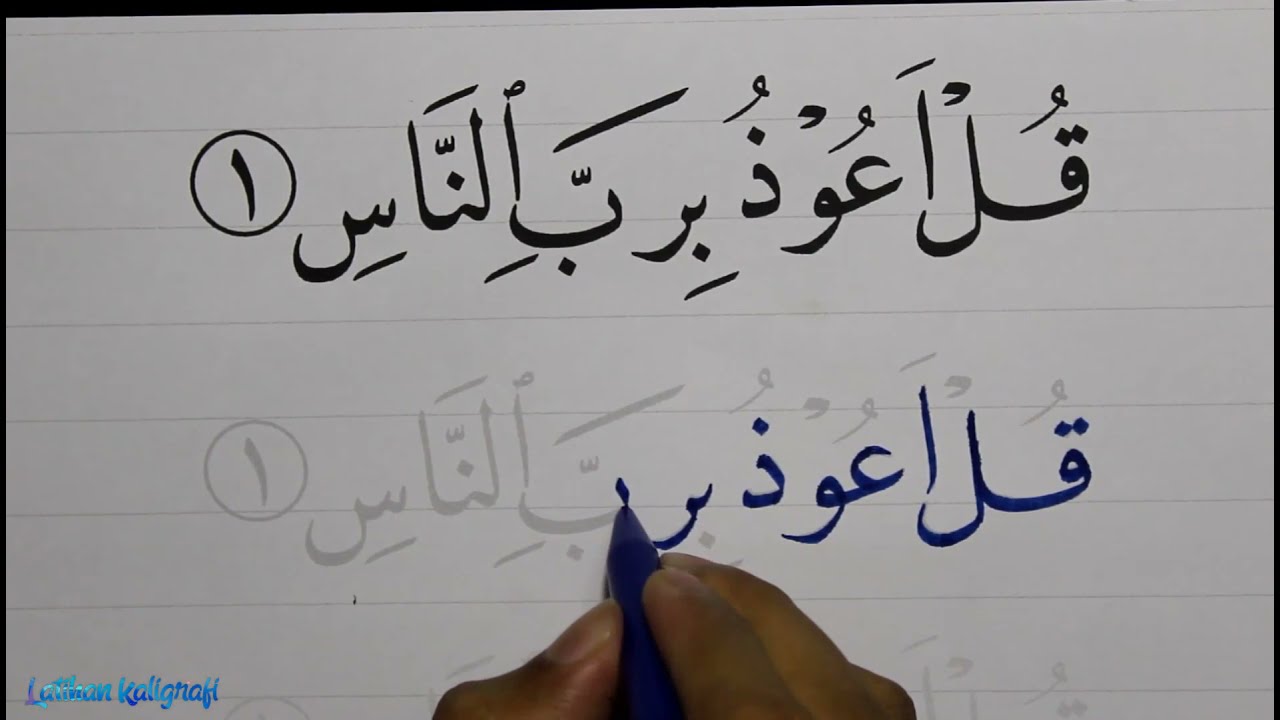 قُلْ أَعُوْذُ بِرَبِّ ٱلنَّاسِ ١
قُلْ أَعُوْذُ بِرَبِّ ٱلنَّاسِ ١
Latihan Kaligrafi